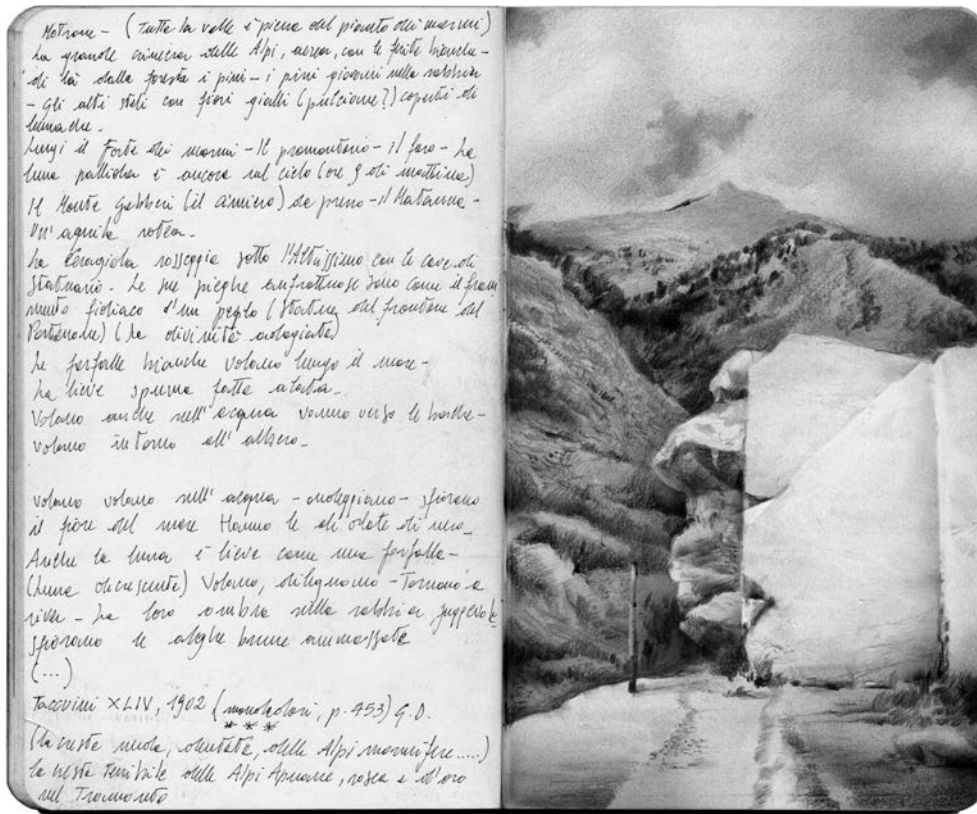 Motrone - (Tutta la valle è piena del pianto dei marmi)
La grande criniera delle Alpi, aerea, con le ferite bianche -
di là dalla foresta i pini - i pini giovani nella sabbia
- gli alti steli con fiori gialli (pulciame?) coperti di
lumache.
Lungi il Forte dei marmi - Il promontorio - Il faro - La
luna pallida è ancora nel cielo (ore 9 di mattina)
Il Monte Gabberi (il cimiero) da presso - Il Matanna -
Un'aquila rotea -
La Ceragiola rosseggia sotto l'Altissimo con le cave di
Statuario - Le sue pieghe anfrattuose sono come il fram
mento fidiaco d'un peplo (Statue del frontone del
Partenone) (Le divinità adagiate)
Le farfalle bianche volano lungo il mare -
La lieve spuma fatta alata -
Volano anche nell'acqua vanno verso le barche -
volano intorno all'albero -
volano volano nell'acqua - aleggiano - sfiorano
il fiore del mare Hanno le ali orlate di nero -
Anche la luna è lieve come una farfalla -
(Luna decrescente) Volano, dileguano - Tornano a
riva - La loro ombra nella sabbia,
sfiorano le alghe brune ammassate
(...)
Taccuini XLIV, 1902 (p. 453) G.D.
* * *
(la cresta nuda, dentata, delle Alpi marmifere.....)
la cresta terribile delle Alpi Apuane, rosea e d'oro
nel Tramonto